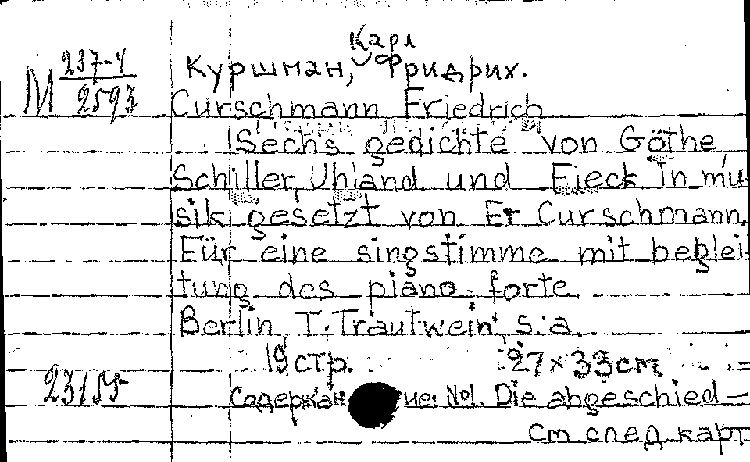 Карл
М 237-4/2593
Куршман, Фридрих.
Curschmann Friedrich
Sechs gedichte von Göthe
Schiller, Uhland und Tieck In mu-
sik gesetzt von Fr Curschmann.
Für eine singstimme mit beglei-
tung des piano-forte
Berlin, T. Trautwein, s.a.
19 стр. 27×33 cm
Содержание: №1. Die abgeschied-
см след. карт